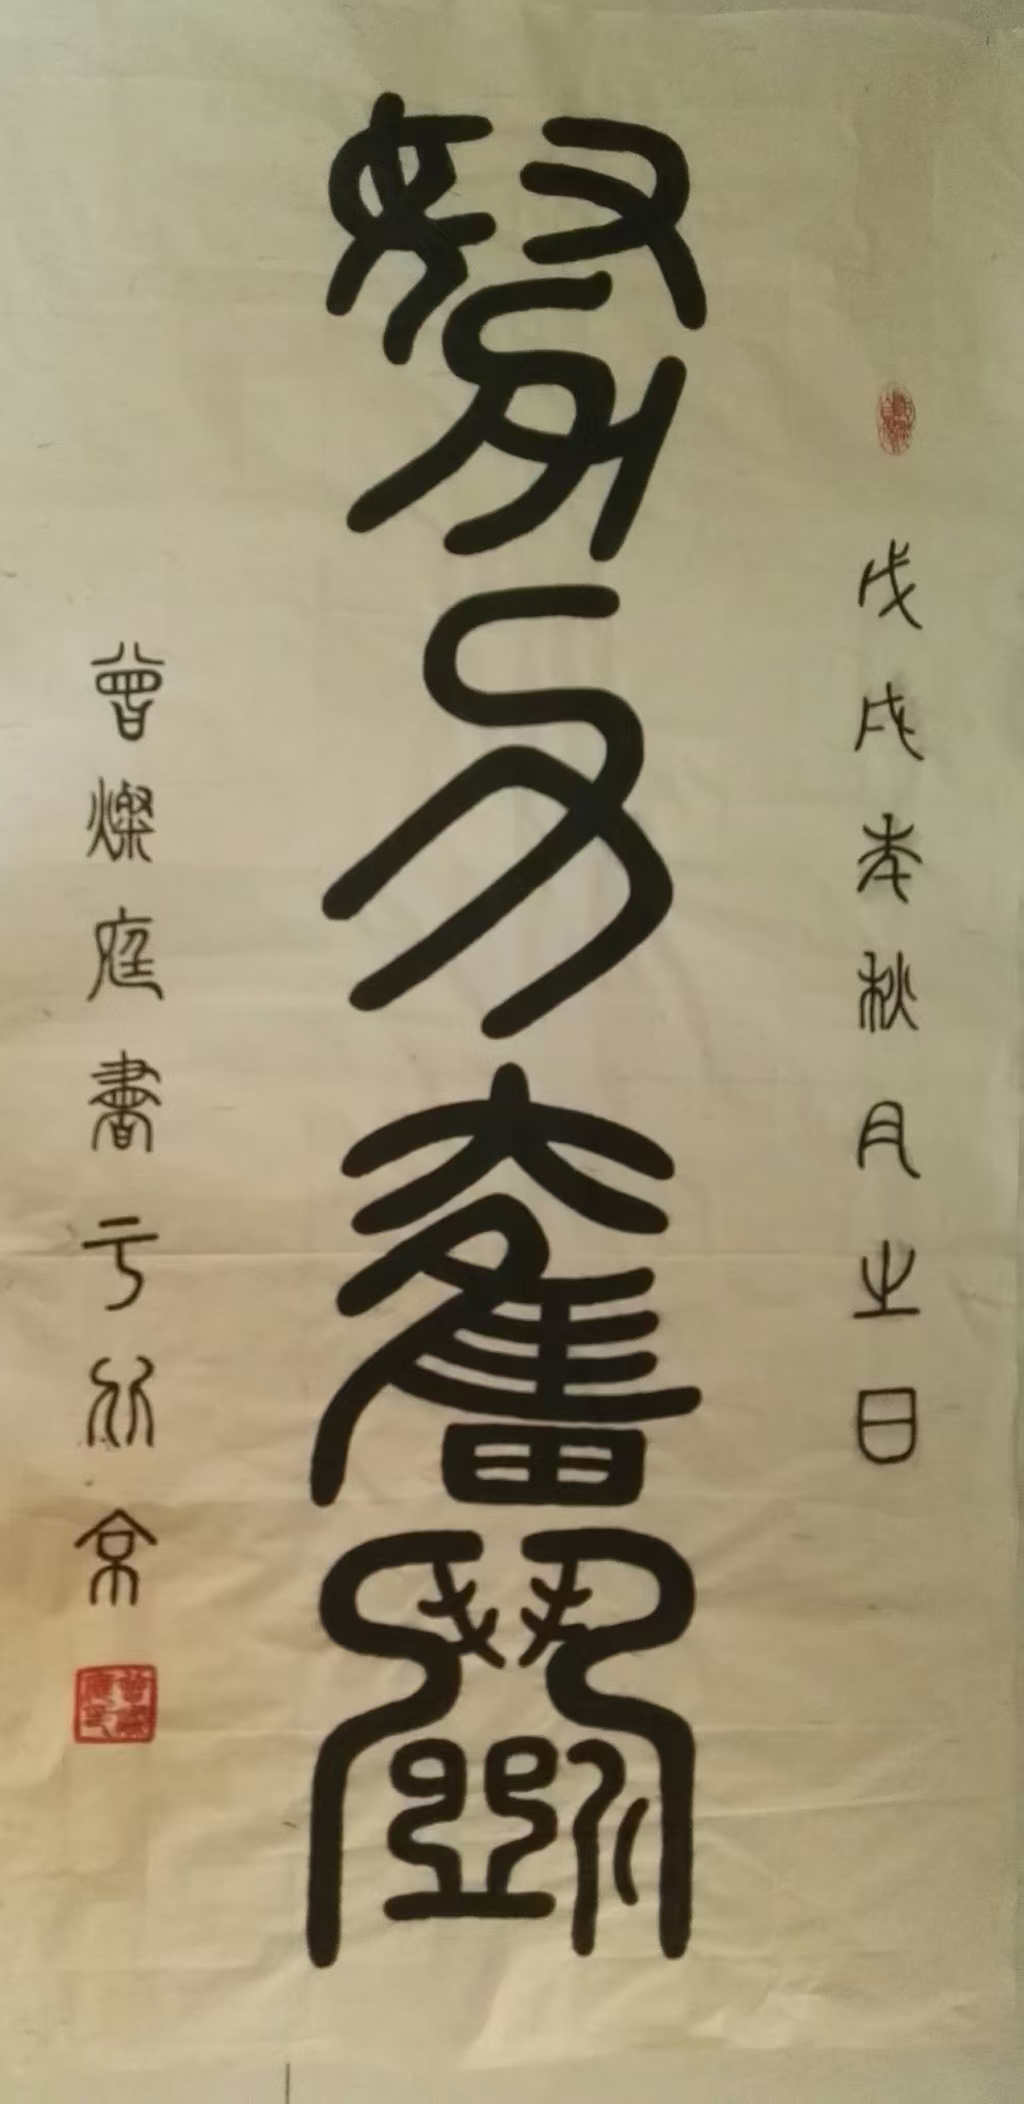 戊戌年秋月之日
努力奮鬥
曾燦庭書于北京